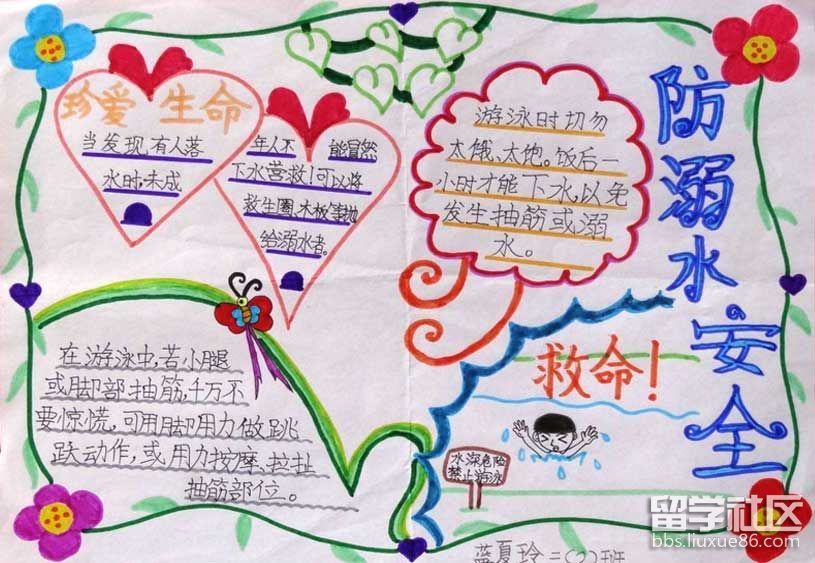 防溺水安全
珍爱生命
当发现有人落
水时,未成
年人不能冒然
下水营救!可以将
救生圈、木板等抛
给溺水者。
游泳时切勿
太饿、太饱。饭后一
小时才能下水,以免
发生抽筋或溺
水。
在游泳中,若小腿
或脚部抽筋,千万不
要惊慌,可用脚用力做跳
跃动作,或用力按摩、拉扯
抽筋部位。
救命!
水深危险
禁止游泳
蓝夏玲 二(2)班
留学社区
bbs.liuxue86.com